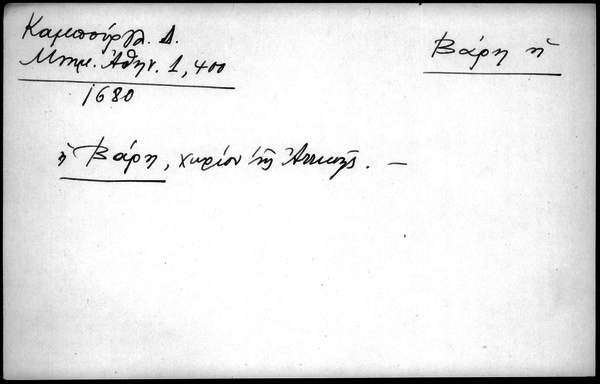 Καμπούργλ. Δ.
Μνημ. Ἀθην. 1, 400
1680
Βάρη ἡ
ἡ Βάρη, χωρίον τῆς Ἀττικῆς. —